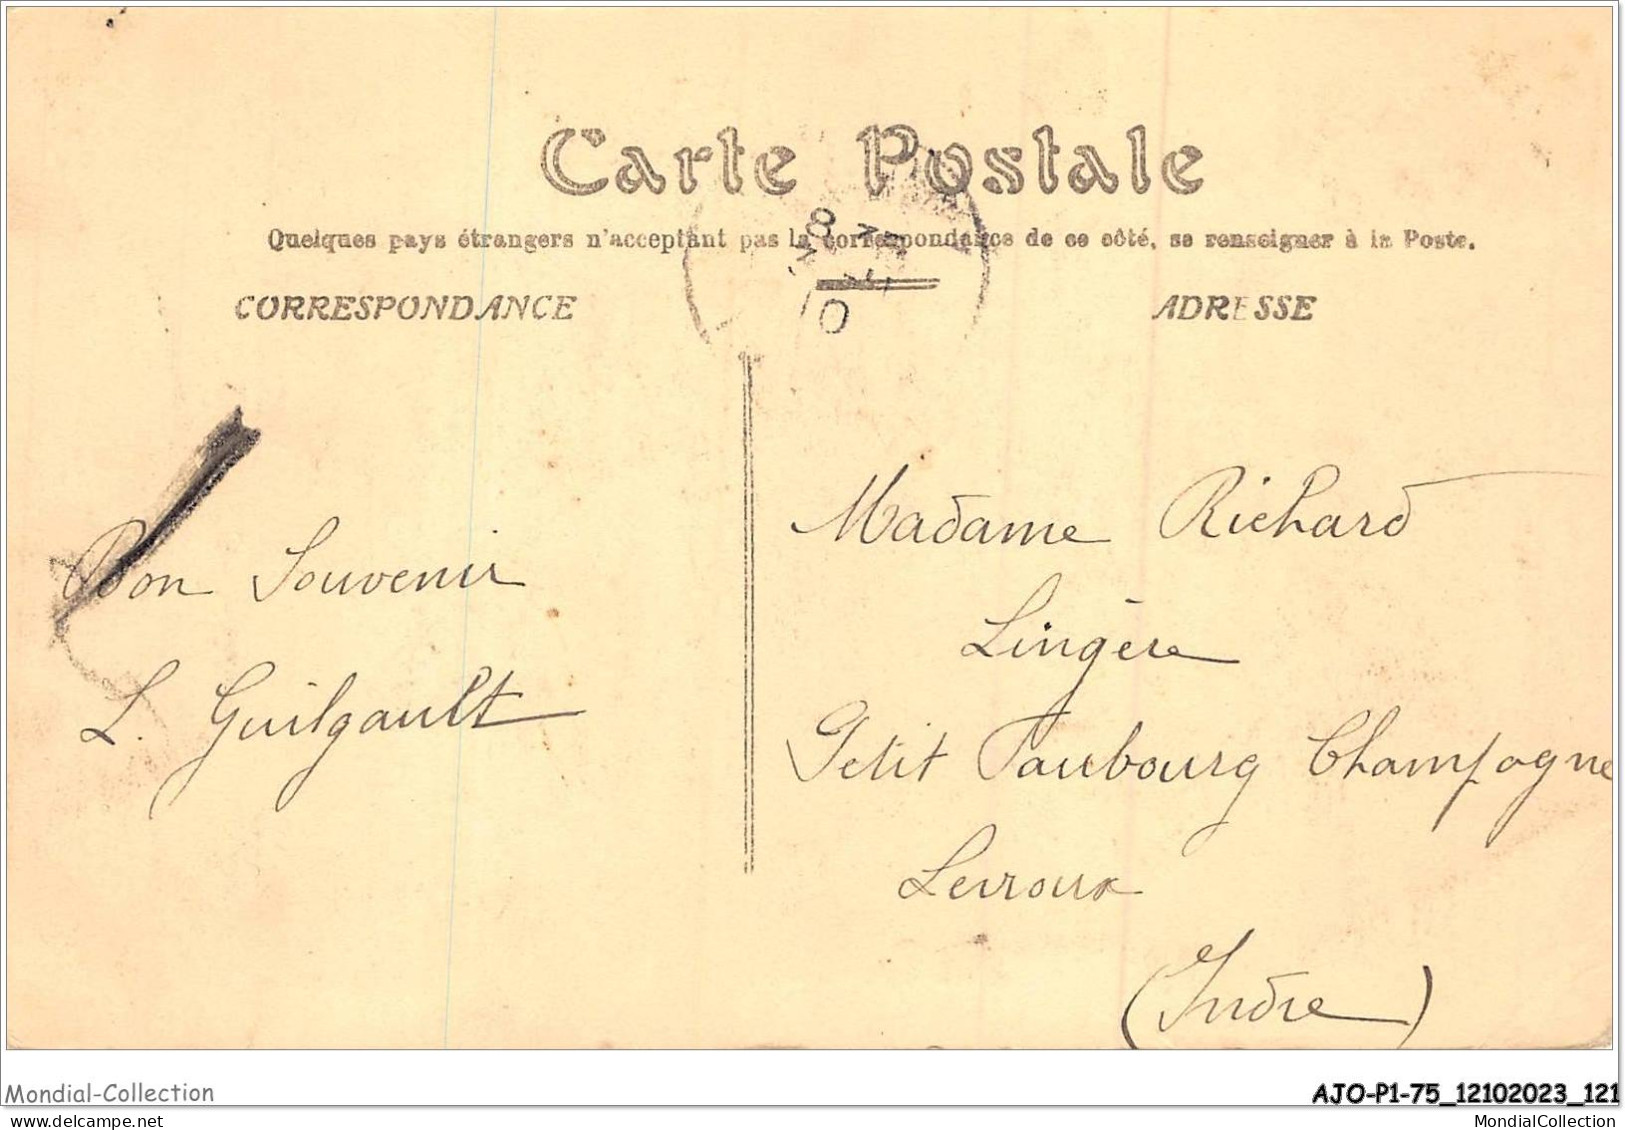 Carte Postale
Quelques pays étrangers n'acceptant pas la correspondance de ce côté, se renseigner à la Poste.
CORRESPONDANCE
ADRESSE
Bon Souvenir
L. Guilgault
Madame Richard
Lingère
Petit Faubourg Champagne
Levroux
(Indre)
Mondial-Collection
AJO-P1-75_12102023_121
MondialCollection
MondialCollection